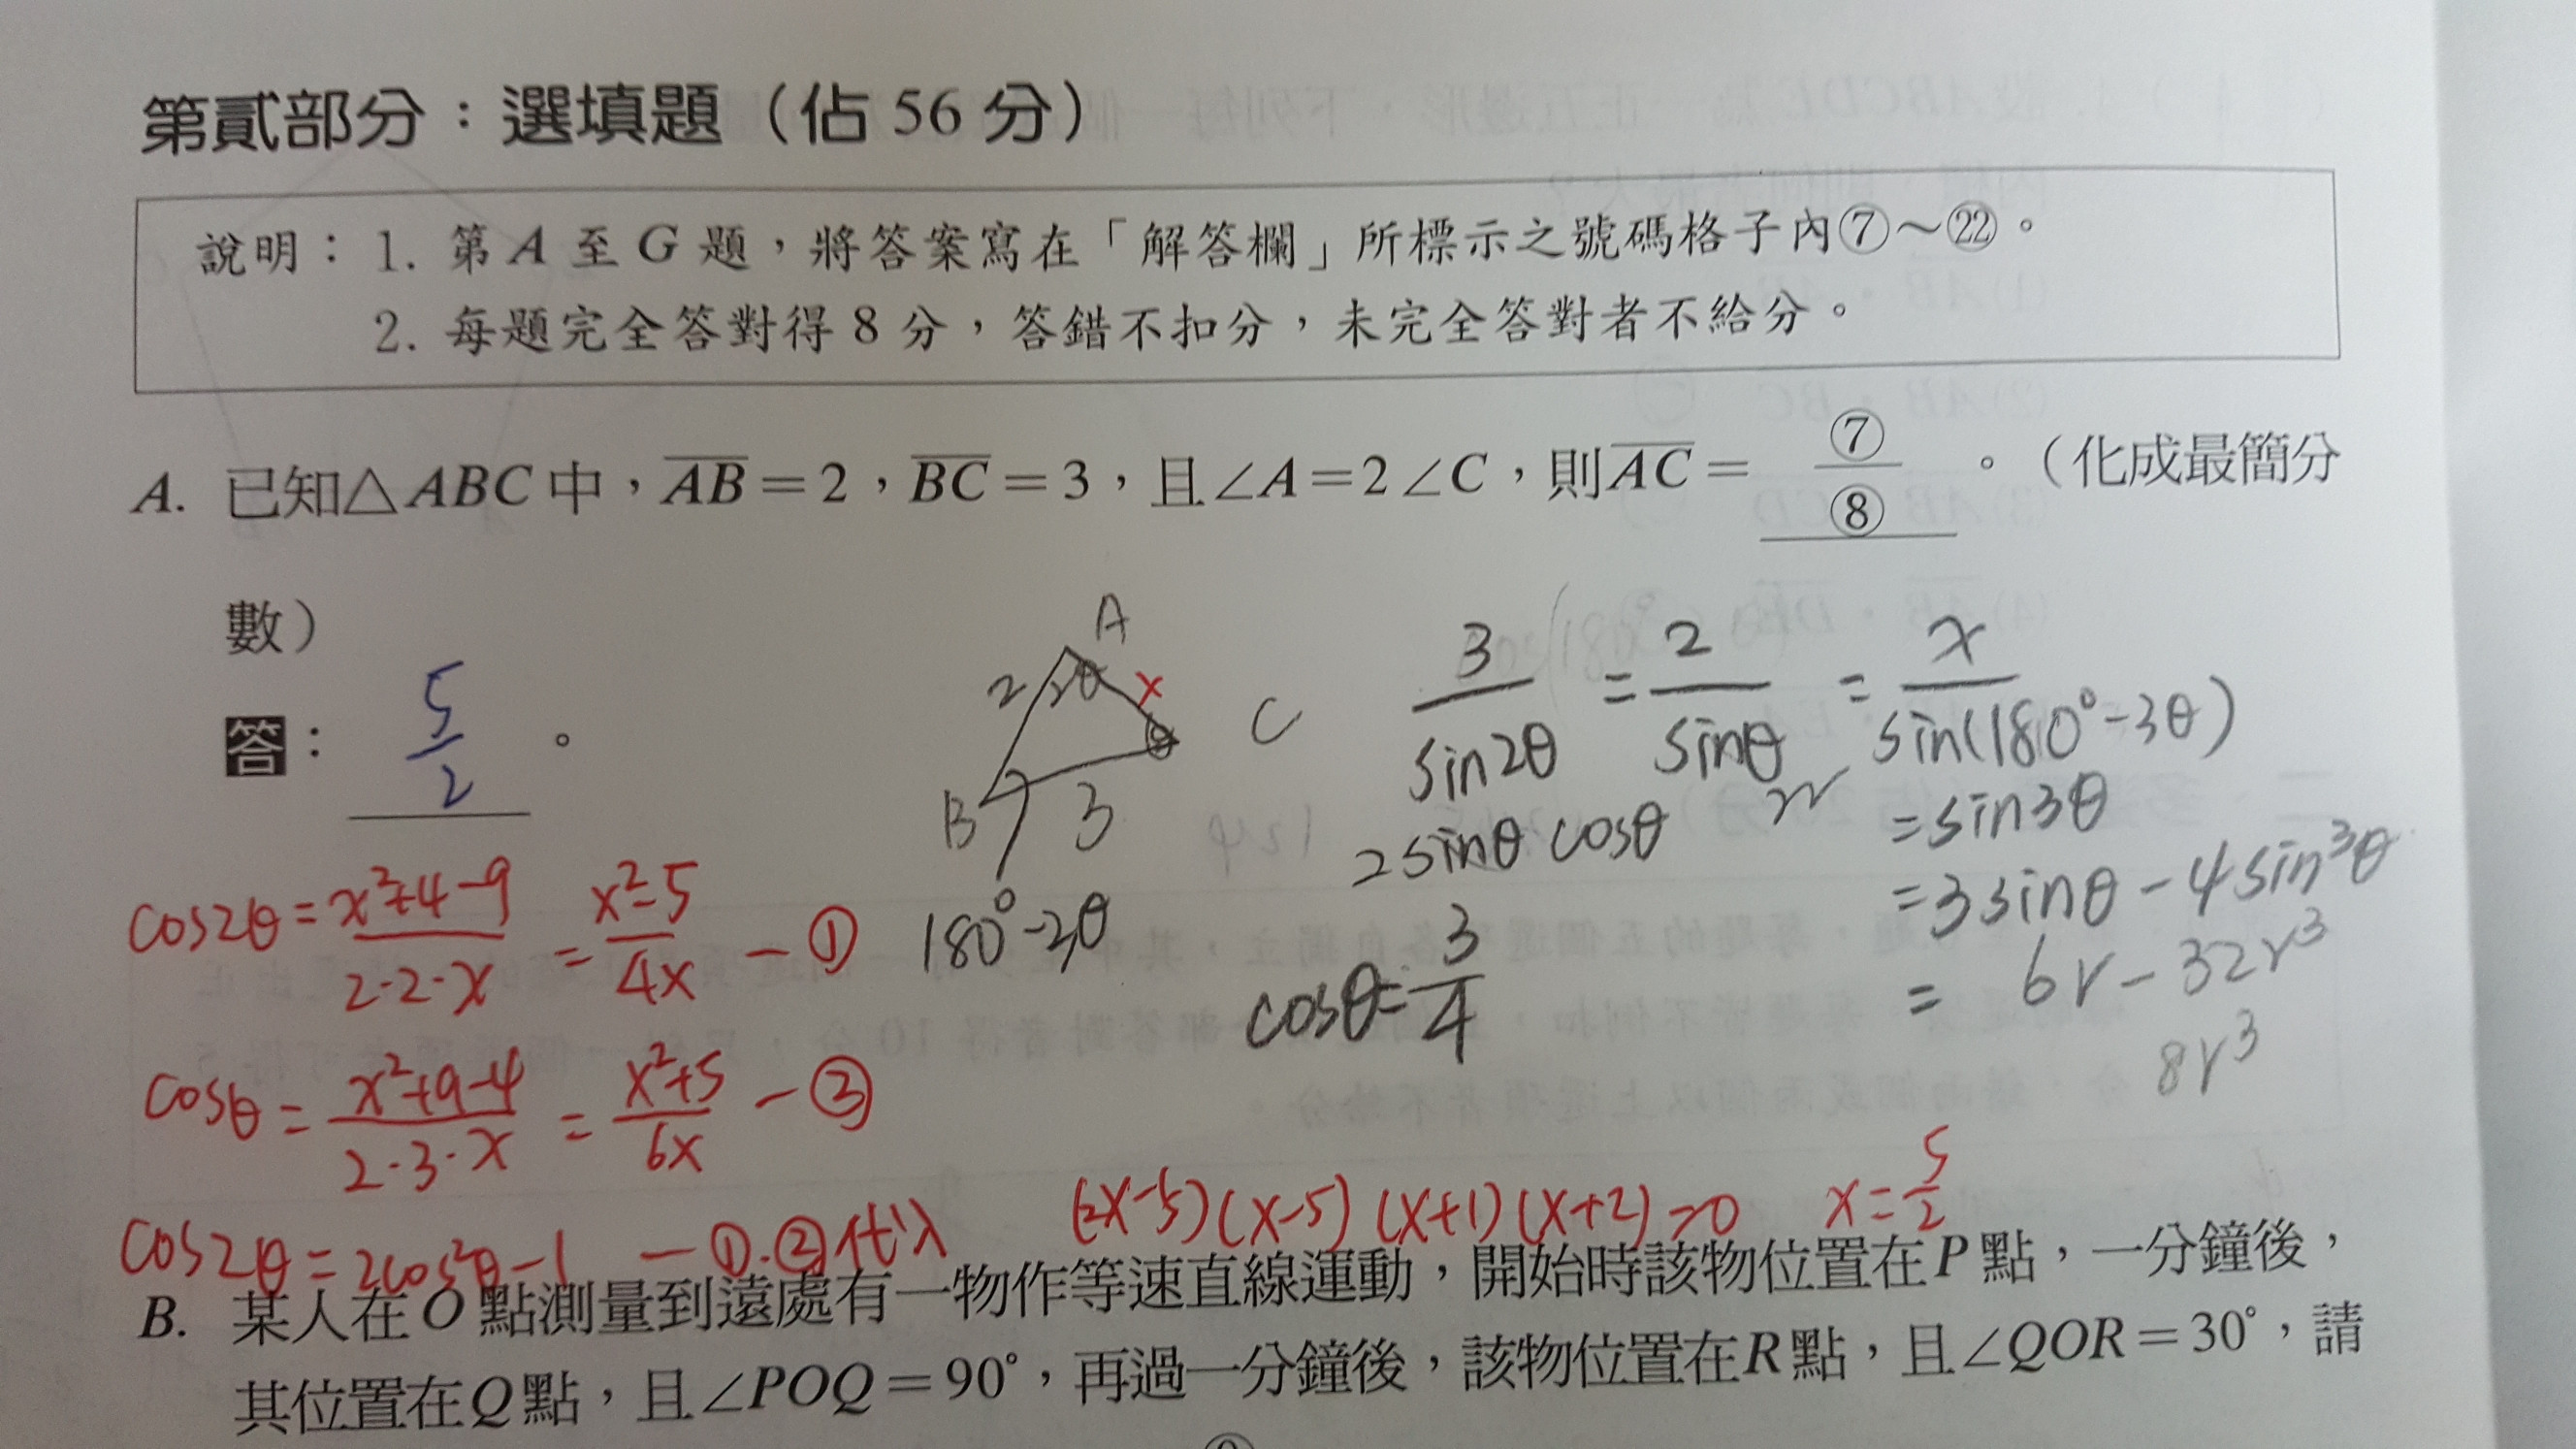 第貳部分：選填題（佔 56 分）
說明：1. 第 A 至 G 題，將答案寫在「解答欄」所標示之號碼格子內⑦～㉒。
2. 每題完全答對得 8 分，答錯不扣分，未完全答對者不給分。
A. 已知△ABC 中，AB＝2，BC＝3，且∠A＝2∠C，則AC＝ ⑦/⑧ 。（化成最簡分
數）
答： 5/2 。
A
2 2θ x
θ C
B 3
180°-3θ
3/sin2θ = 2/sinθ = x/sin(180°-3θ)
2sinθ cosθ
=sin3θ
=3sinθ-4sin³θ
= 6r-32r³
8r³
cosθ=3/4
cos2θ=x²+4-9/2·2·x = x²-5/4x -①
cosθ=x²+9-4/2·3·x = x²+5/6x -②
cos2θ=2cos²θ-1 -①.②代入
(2x-5)(x-5)(x+1)(x+2)=0 x=5/2
B. 某人在O點測量到遠處有一物作等速直線運動，開始時該物位置在P點，一分鐘後，
其位置在Q點，且∠POQ＝90°，再過一分鐘後，該物位置在R點，且∠QOR＝30°，請